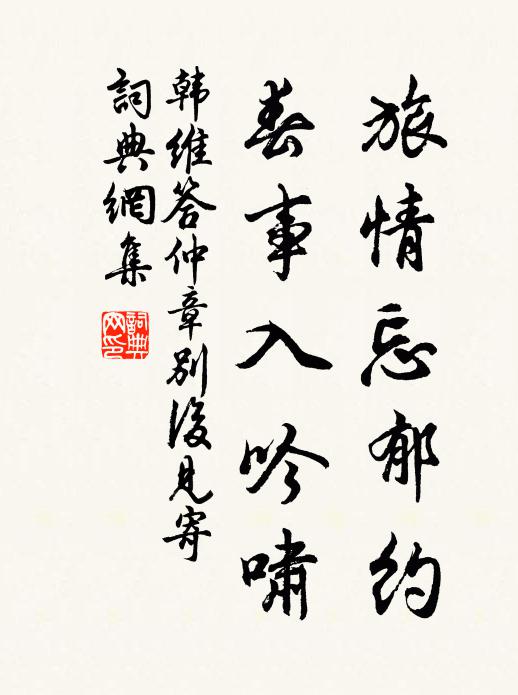 旅情忘郁约
春事入吟啸
韩维答仲章别后見寄
詞典網集
詞典网印